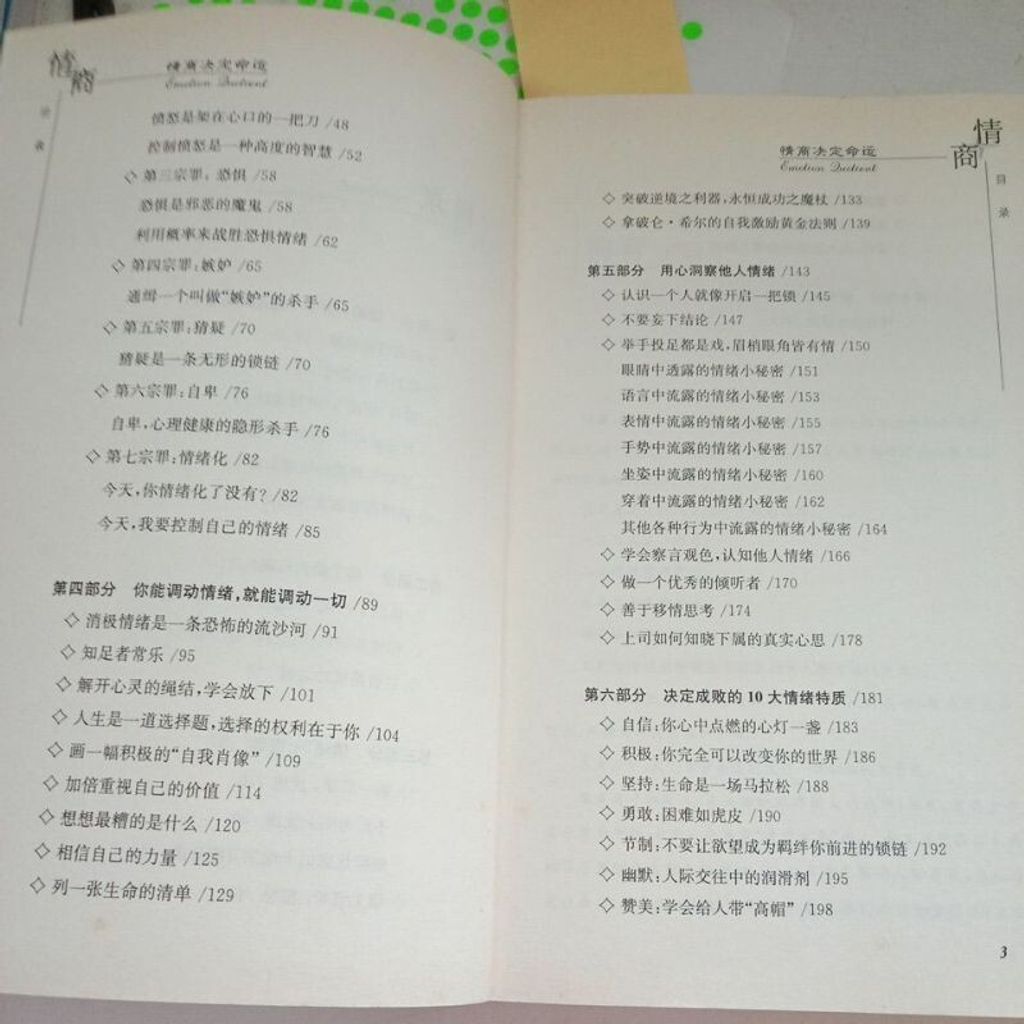 情商
情商决定命运
Emotion Quotient
目录
愤怒是架在心口的一把刀 /48
控制愤怒是一种高度的智慧 /52
◇ 第三宗罪:恐惧 /58
恐惧是邪恶的魔鬼 /58
利用概率来战胜恐惧情绪 /62
◇ 第四宗罪:嫉妒 /65
通缉一个叫做“嫉妒”的杀手 /65
◇ 第五宗罪:猜疑 /70
猜疑是一条无形的锁链 /70
◇ 第六宗罪:自卑 /76
自卑,心理健康的隐形杀手 /76
◇ 第七宗罪:情绪化 /82
今天,你情绪化了没有? /82
今天,我要控制自己的情绪 /85
第四部分 你能调动情绪,就能调动一切 /89
◇ 消极情绪是一条恐怖的流沙河 /91
◇ 知足者常乐 /95
◇ 解开心灵的绳结,学会放下 /101
◇ 人生是一道选择题,选择的权利在于你 /104
◇ 画一幅积极的“自我肖像” /109
◇ 加倍重视自己的价值 /114
◇ 想想最糟的是什么 /120
◇ 相信自己的力量 /125
◇ 列一张生命的清单 /129
情商决定命运
Emotion Quotient
情商
目录
◇ 突破逆境之利器,永恒成功之魔杖 /133
◇ 拿破仑·希尔的自我激励黄金法则 /139
第五部分 用心洞察他人情绪 /143
◇ 认识一个人就像开启一把锁 /145
◇ 不要妄下结论 /147
◇ 举手投足都是戏,眉梢眼角皆有情 /150
眼睛中透露的情绪小秘密 /151
语言中流露的情绪小秘密 /153
表情中流露的情绪小秘密 /155
手势中流露的情绪小秘密 /157
坐姿中流露的情绪小秘密 /160
穿着中流露的情绪小秘密 /162
其他各种行为中流露的情绪小秘密 /164
◇ 学会察言观色,认知他人情绪 /166
◇ 做一个优秀的倾听者 /170
◇ 善于移情思考 /174
◇ 上司如何知晓下属的真实心思 /178
第六部分 决定成败的 10 大情绪特质 /181
◇ 自信:你心中点燃的心灯一盏 /183
◇ 积极:你完全可以改变你的世界 /186
◇ 坚持:生命是一场马拉松 /188
◇ 勇敢:困难如虎皮 /190
◇ 节制:不要让欲望成为羁绊你前进的锁链 /192
◇ 幽默:人际交往中的润滑剂 /195
◇ 赞美:学会给人带“高帽” /198
3